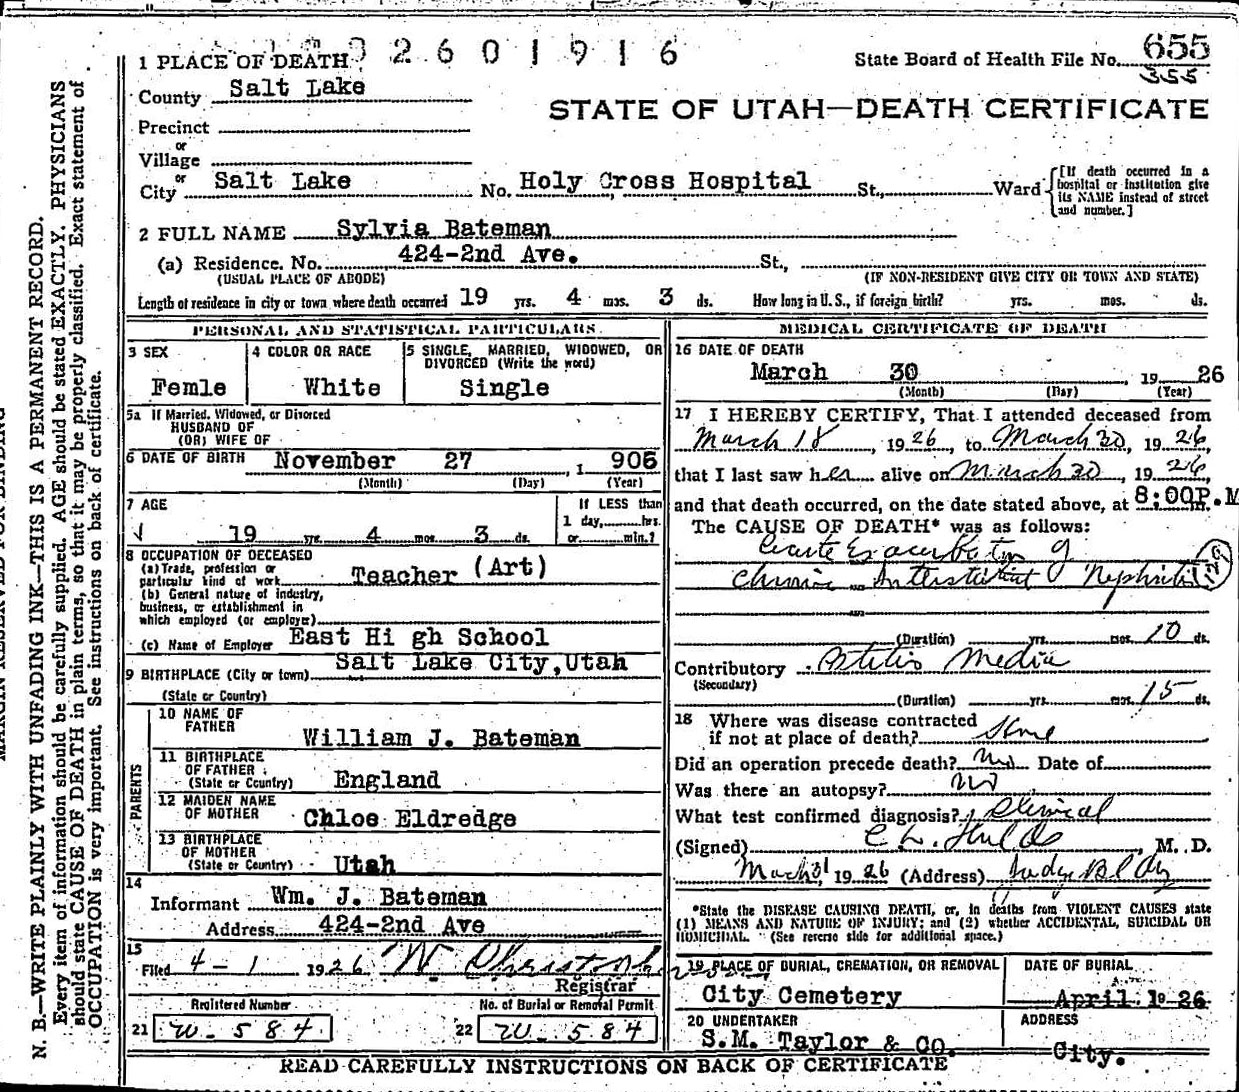 2601916
1 PLACE OF DEATH
State Board of Health File No. 655
355
County Salt Lake
STATE OF UTAH—DEATH CERTIFICATE
Precinct
or
Village
or
City Salt Lake No. Holy Cross Hospital St., Ward
[If death occurred in a hospital or institution give its NAME instead of street and number.]
2 FULL NAME Sylvia Bateman
(a) Residence. No. 424-2nd Ave. St.,
(USUAL PLACE OF ABODE) (IF NON-RESIDENT GIVE CITY OR TOWN AND STATE)
Length of residence in city or town where death occurred 19 yrs. 4 mos. 3 ds. How long in U. S., if foreign birth? yrs. mos. ds.
PERSONAL AND STATISTICAL PARTICULARS
3 SEX
Femle
4 COLOR OR RACE
White
5 SINGLE, MARRIED, WIDOWED, OR
DIVORCED (Write the word)
Single
5a If Married, Widowed, or Divorced
HUSBAND OF
(OR) WIFE OF
6 DATE OF BIRTH November 27, 1906
(Month) (Day) (Year)
7 AGE
19 yrs. 4 mos. 3 ds.
If LESS than
1 day, hrs.
or min.?
8 OCCUPATION OF DECEASED
(a) Trade, profession or
particular kind of work Teacher (Art)
(b) General nature of industry,
business, or establishment in
which employed (or employer)
(c) Name of Employer East Hi gh School
9 BIRTHPLACE (City or town) Salt Lake City, Utah
(State or Country)
PARENTS
10 NAME OF
FATHER William J. Bateman
11 BIRTHPLACE
OF FATHER
(State or Country) England
12 MAIDEN NAME
OF MOTHER Chloe Eldredge
13 BIRTHPLACE
OF MOTHER
(State or Country) Utah
14
Informant Wm. J. Bateman
Address 424-2nd Ave
15
Filed 4-1 1926 W.
Registrar
Registered Number
21 W. 584
No. of Burial or Removal Permit
22 W. 584
MEDICAL CERTIFICATE OF DEATH
16 DATE OF DEATH
March 30, 1926
(Month) (Day) (Year)
17 I HEREBY CERTIFY, That I attended deceased from
March 18, 1926, to March 30, 1926,
that I last saw her alive on March 30, 1926,
and that death occurred, on the date stated above, at 8:00P.M
The CAUSE OF DEATH* was as follows:
Acute Exacerbation of
Chronic Interstitial Nephritis 129
(Duration) yrs. mos. 10 ds.
Contributory Otitis Media
(Secondary)
(Duration) yrs. mos. 15 ds.
18 Where was disease contracted
if not at place of death? Home
Did an operation precede death? No Date of
Was there an autopsy? No
What test confirmed diagnosis? Clinical
(Signed) C. L., M. D.
March 31, 1926 (Address) Judge Bldg
*State the DISEASE CAUSING DEATH, or, in deaths from VIOLENT CAUSES state
(1) MEANS AND NATURE OF INJURY; and (2) whether ACCIDENTAL, SUICIDAL OR
HOMICIDAL. (See reverse side for additional space.)
19 PLACE OF BURIAL, CREMATION, OR REMOVAL
City Cemetery
DATE OF BURIAL
April 1 1926
20 UNDERTAKER
S.M. Taylor & CO.
ADDRESS
City.
READ CAREFULLY INSTRUCTIONS ON BACK OF CERTIFICATE
MARGIN RESERVED FOR BINDING
N. B.—WRITE PLAINLY WITH UNFADING INK—THIS IS A PERMANENT RECORD.
Every item of information should be carefully supplied. AGE should be stated EXACTLY. PHYSICIANS
should state CAUSE OF DEATH in plain terms, so that it may be properly classified. Exact statement of
OCCUPATION is very important. See instructions on back of certificate.